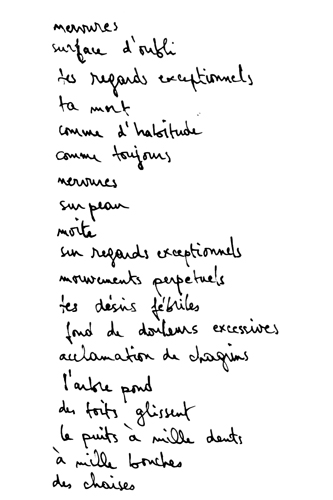 nervures
surface d'oubli
tes regards exceptionnels
ta mort
comme d'habitude
comme toujours
nervures
sur peau
moite
sur regards exceptionnels
mouvements perpétuels
tes désirs fébriles
fond de douleurs excessives
acclamation de chagrins
l'arbre pond
des toits glissent
le puits à mille dents
à mille bouches
des chaises